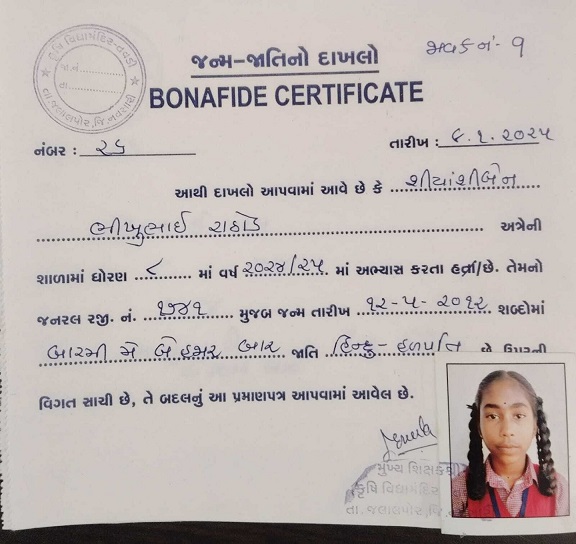 કૃષિ વિદ્યામંદિર-નવડી
તા.જલાલપોર,જિ.નવસારી
જા.નં.
તા.
જન્મ-જાતિનો દાખલો
BONAFIDE CERTIFICATE
નં- ૧
નંબર :
તારીખ : ૮.૧.૨૦૨૫
આથી દાખલો આપવામાં આવે છે કે શીયાંશીબેન
ભીખુભાઈ રાઠોડ અત્રેની
શાળામાં ધોરણ ૮ માં વર્ષ ૨૦૨૪/૨૫ માં અભ્યાસ કરતા હતા/છે. તેમનો
જનરલ રજી. નં. ૧૭૪૧ મુજબ જન્મ તારીખ ૧૨-૫-૨૦૧૨ શબ્દોમાં
બારમી મે બે હજાર બાર જાતિ હિન્દુ-હળપતિ છે. ઉપરની
વિગત સાચી છે, તે બદલનું આ પ્રમાણપત્ર આપવામાં આવેલ છે.
મુખ્ય શિક્ષકશ્રી
કૃષિ વિદ્યામંદિર
તા. જલાલપોર,જિ.